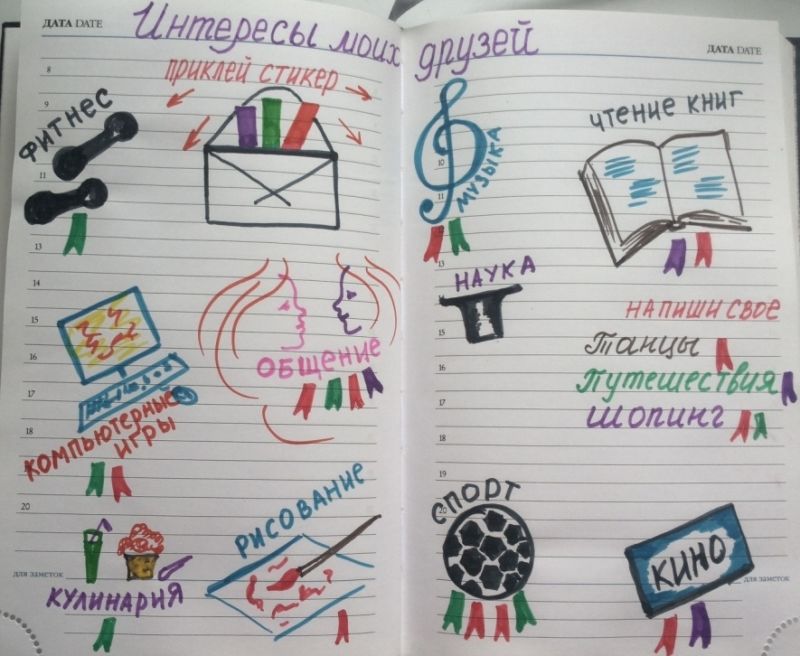 Интересы моих друзей
ДАТА DATE
ДАТА DATE
приклей стикер
8
9
11
13
14
15
16
17
18
20
ФИТНЕС
ОБЩЕНИЕ
КОМПЬЮТЕРНЫЕ
ИГРЫ
РИСОВАНИЕ
КУЛИНАРИЯ
для заметок
10
11
12
13
15
16
17
18
19
20
МУЗЫКА
ЧТЕНИЕ КНИГ
НАУКА
НАПИШИ СВОЕ
Танцы
Путешествия
Шопинг
СПОРТ
КИНО
для заметок